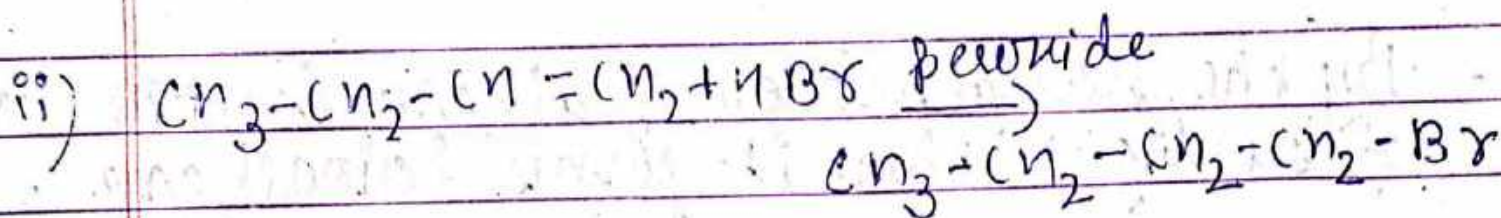 ii) CH3-CH2-CH=CH2+HBr peroxide→
CH3-CH2-CH2-CH2-Br